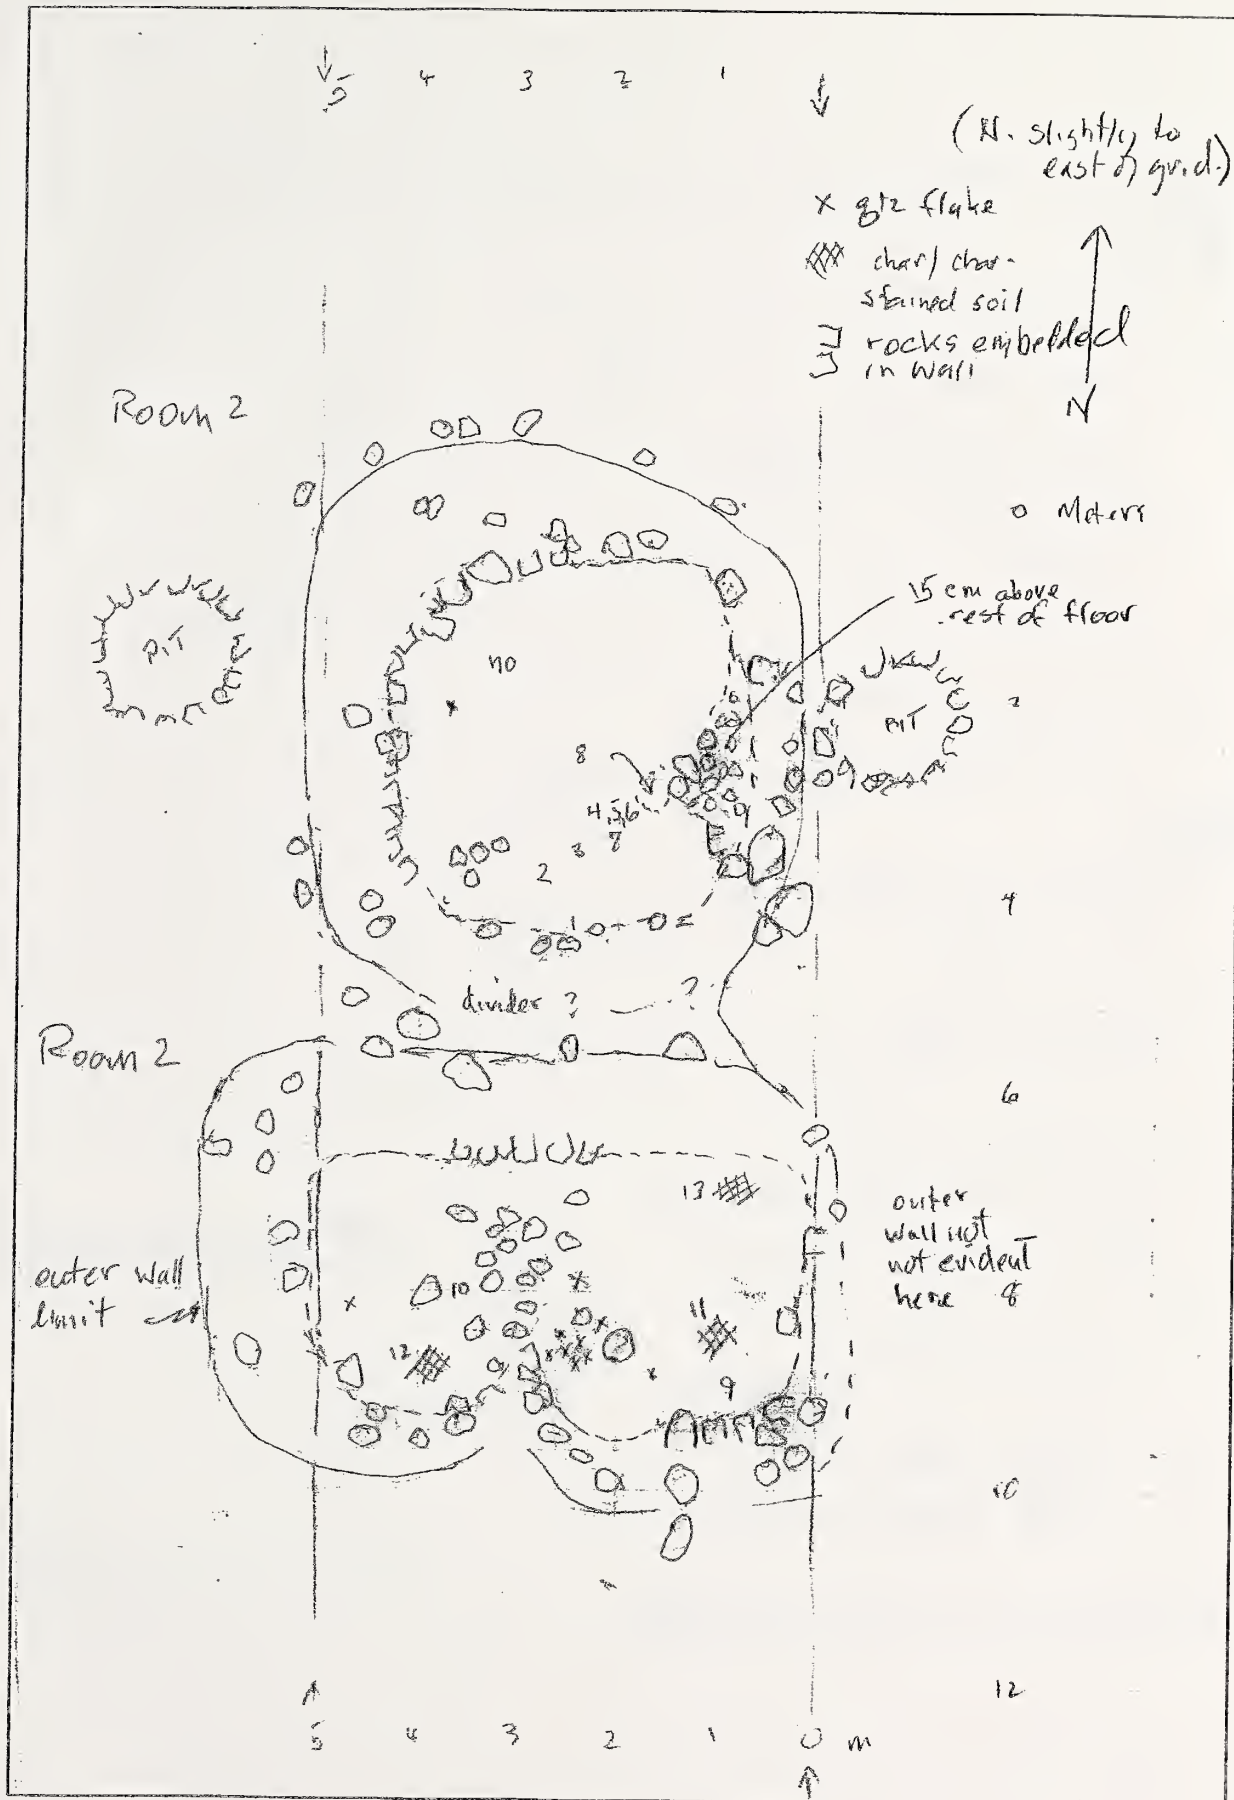 5 4 3 2 1
(N. slightly to
east of grid.)
x qtz flake
char/char-
stained soil
rocks embedded
in wall
N
Room 2
0 Meters
15 cm above
rest of floor
PIT
no
PIT
2
8
4,5,6
8
3
2
9
1
4
divider ? ?
Room 2
6
13
outer
wall not
not evident
here 8
outer wall
limit
10
11
12
9
10
12
5 4 3 2 1 0 m